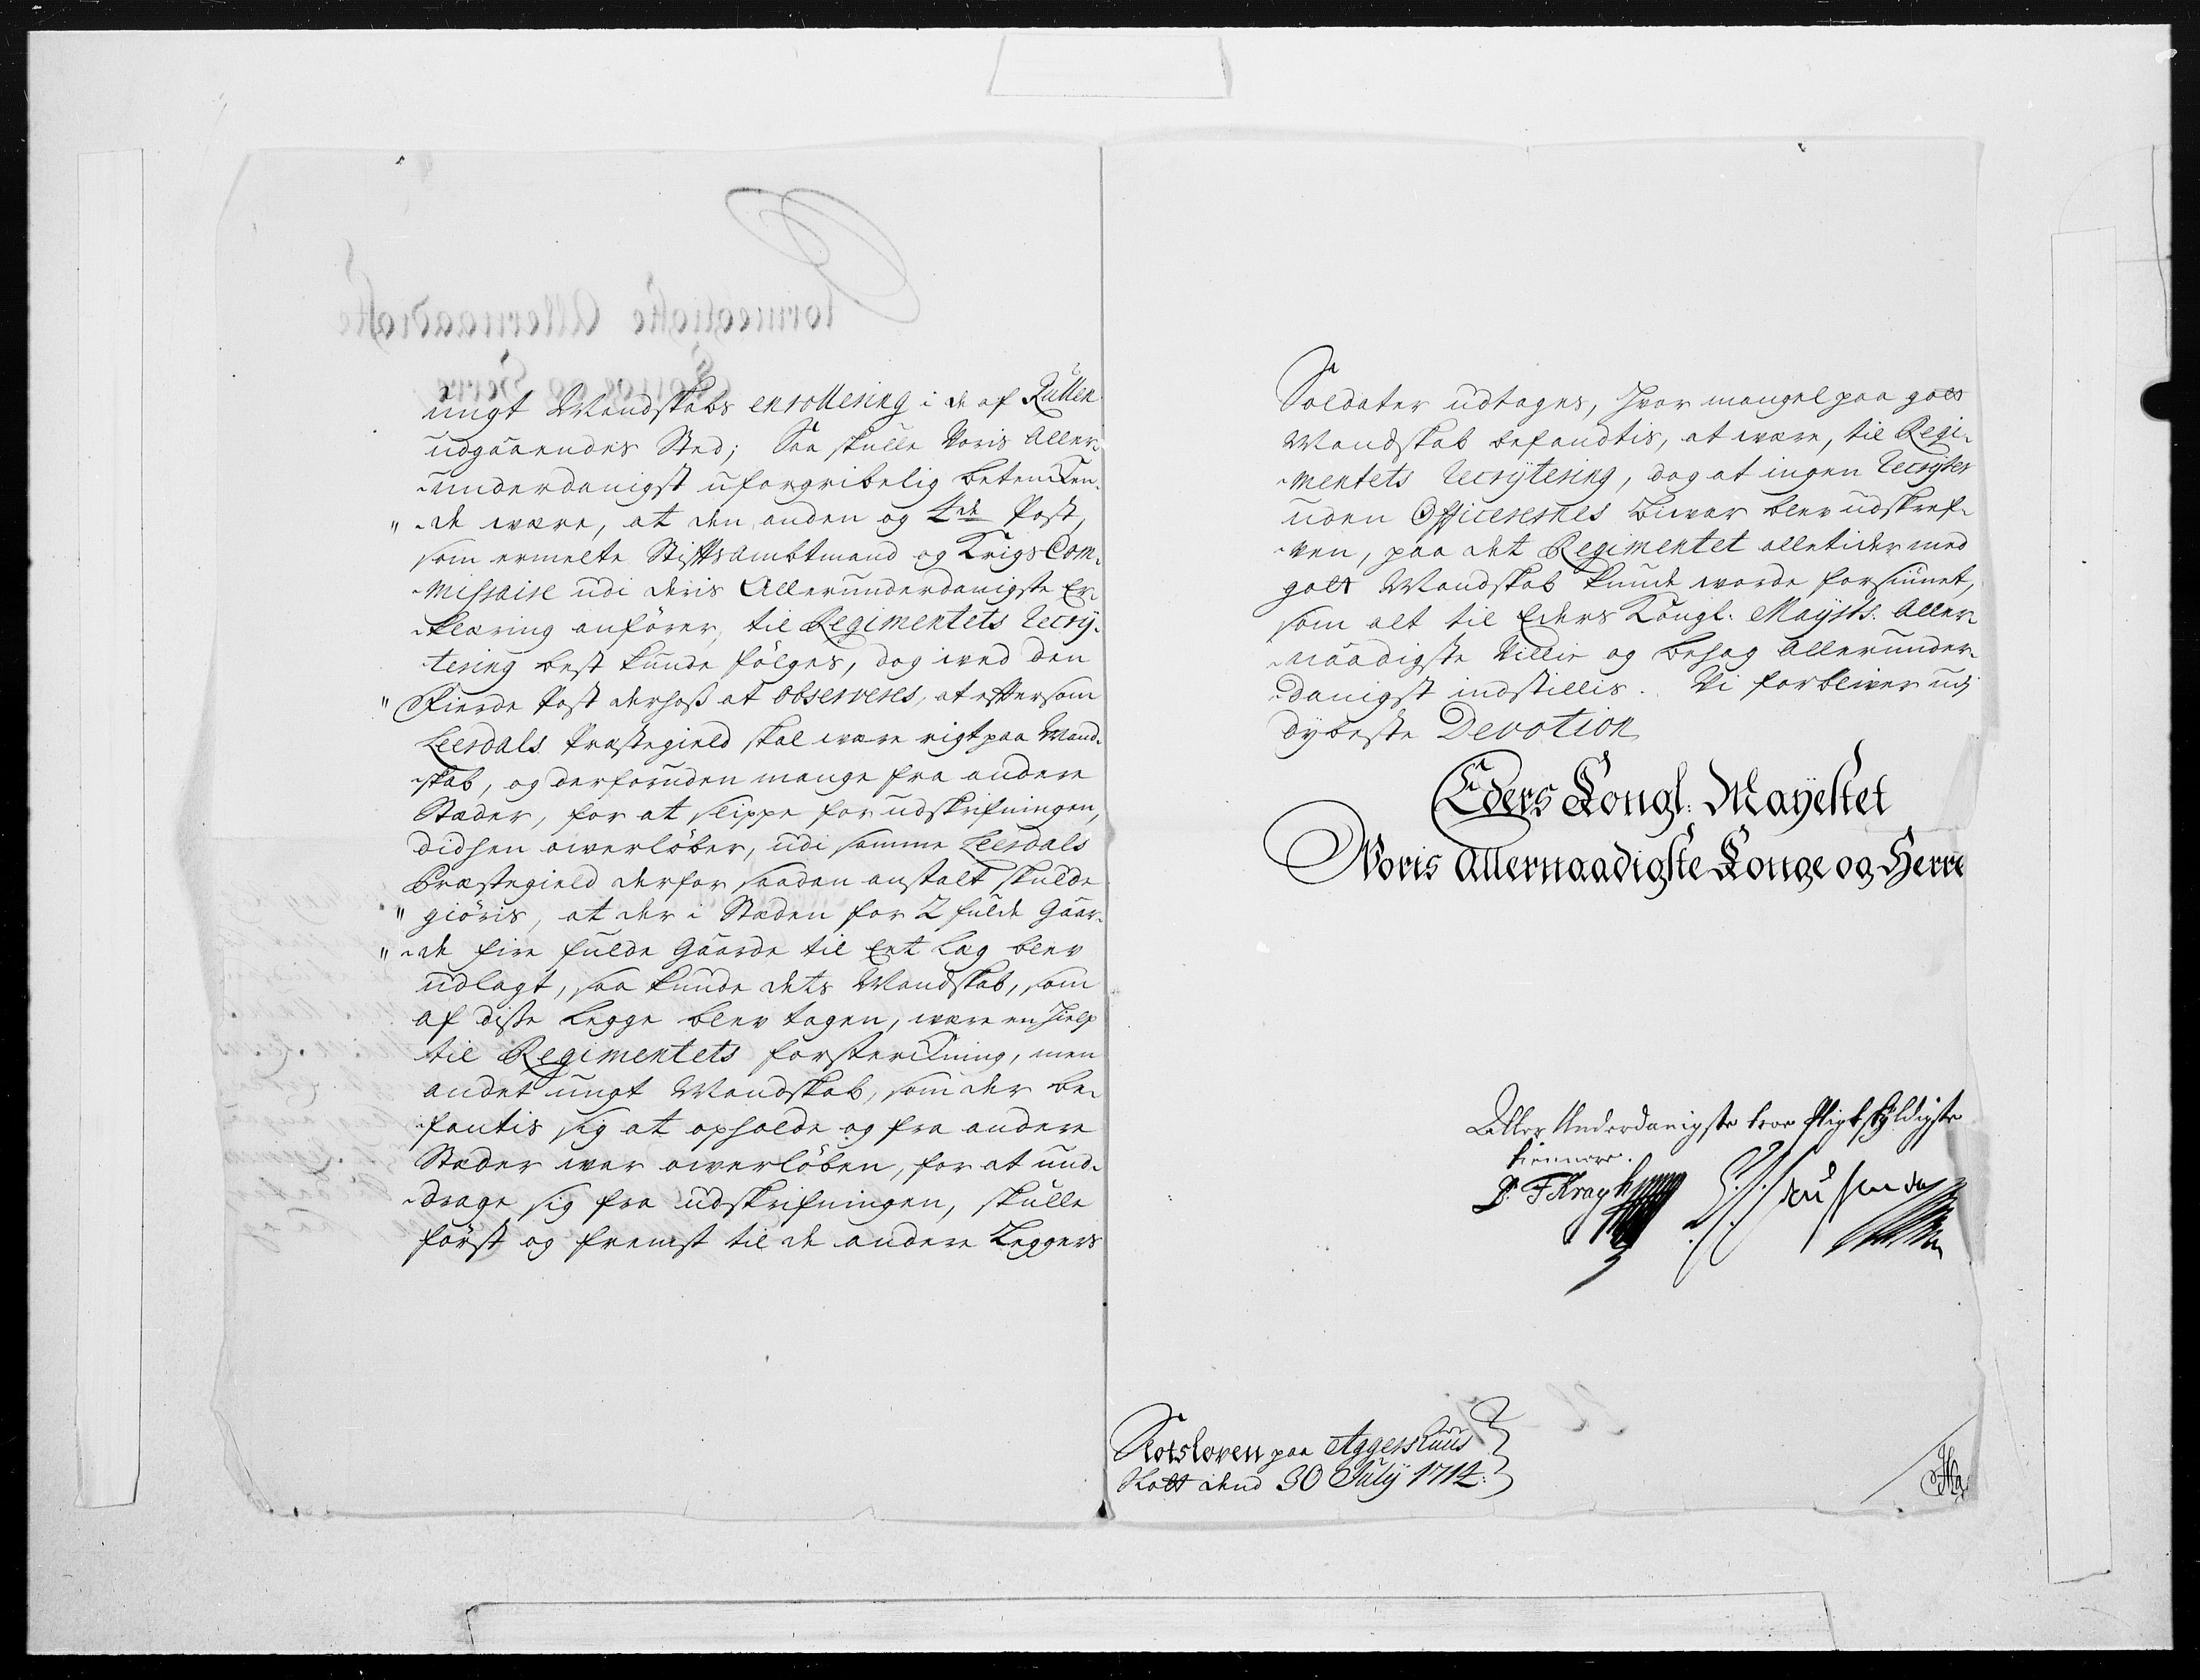 ungt Mandskabs enrollering i de af Rullen
udgaaendes Sted; Saa skulle Voris Aller-
-underdanigst uforgribelig betencken-
" -de være, at den anden og 4de Post,
som ermelte Stiftsambtmand og Krigs Com-
-missaire udi deris Allerunderdanigste Er-
-klæring anfører, til Regimentets Recry-
-tering best kunde følges, dog ved den
" Fierde Post derhoß at observeres, at eftersom
Leerdals Præstegield skal være rigt paa Mand-
-skab, og derforuden mange fra andere
Stæder, for at slippe for udskrifningen,
didhen overløber, udi samme Leerdals
Præstegield derfor saadan anstalt skulde
" giøris, at der i Stæden for 2 fulde Gaar-
" -de fire fulde Gaarde til Ent Læg blev
udlagt, saa kunde dets Mandskab, som
af diße Legge blev tagen, være en hielp
til Regimentets forsterckning, men
andet ungt Mandskab, som der be-
-fantis sig at opholde og fra andere
Stæder var overløben, for at und-
-drage sig fra udskrifningen, skulle
først og fremst til de andere Leggers
Soldater udtages, hvor mangel paa got
Mandskab befandtis, at være, til Regi-
-mentets recrytering, dog at ingen recryter
uden Officerernes bivær blev udskref-
-ven, paa det Regimentet alletider med
got Mandskab kunde vorde forsiunet,
som alt til Eders Kongl. Maysts. Aller-
-naadigste Villie og behag Allerunder-
-danigst indstillis. Vi forbliver udj
dybeste Devotion
Eders Kongl: Mayestet
Voris Allernaadigste Konge og Herre
Aller Underdanigste troe Pligtskyldigste
tienner.
F Kragh
Slotsloven paa Aggershuus
Slott dend 30 July 1714.